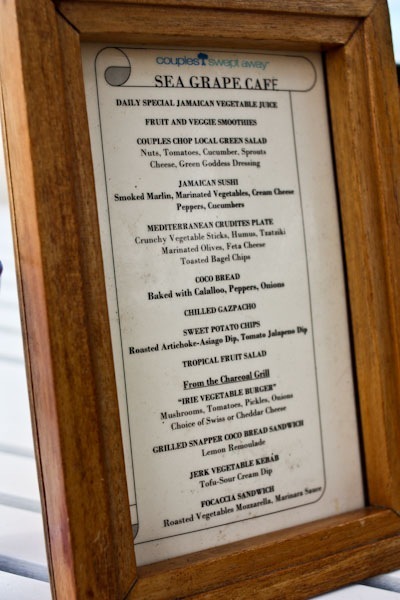 couples swept away
SEA GRAPE CAFE
DAILY SPECIAL JAMAICAN VEGETABLE JUICE
FRUIT AND VEGGIE SMOOTHIES
COUPLES CHOP LOCAL GREEN SALAD
Nuts, Tomatoes, Cucumber, Sprouts
Cheese, Green Goddess Dressing
JAMAICAN SUSHI
Smoked Marlin, Marinated Vegetables, Cream Cheese
Peppers, Cucumbers
MEDITERRANEAN CRUDITES PLATE
Crunchy Vegetable Sticks, Humus, Tzatziki
Marinated Olives, Feta Cheese
Toasted Bagel Chips
COCO BREAD
Baked with Calalloo, Peppers, Onions
CHILLED GAZPACHO
SWEET POTATO CHIPS
Roasted Artichoke-Asiago Dip, Tomato Jalapeno Dip
TROPICAL FRUIT SALAD
From the Charcoal Grill
"IRIE VEGETABLE BURGER"
Mushrooms, Tomatoes, Pickles, Onions
Choice of Swiss or Cheddar Cheese
GRILLED SNAPPER COCO BREAD SANDWICH
Lemon Remoulade
JERK VEGETABLE KEBÁB
Tofu-Sour Cream Dip
FOCACCIA SANDWICH
Roasted Vegetables Mozzarella, Marinara Sauce